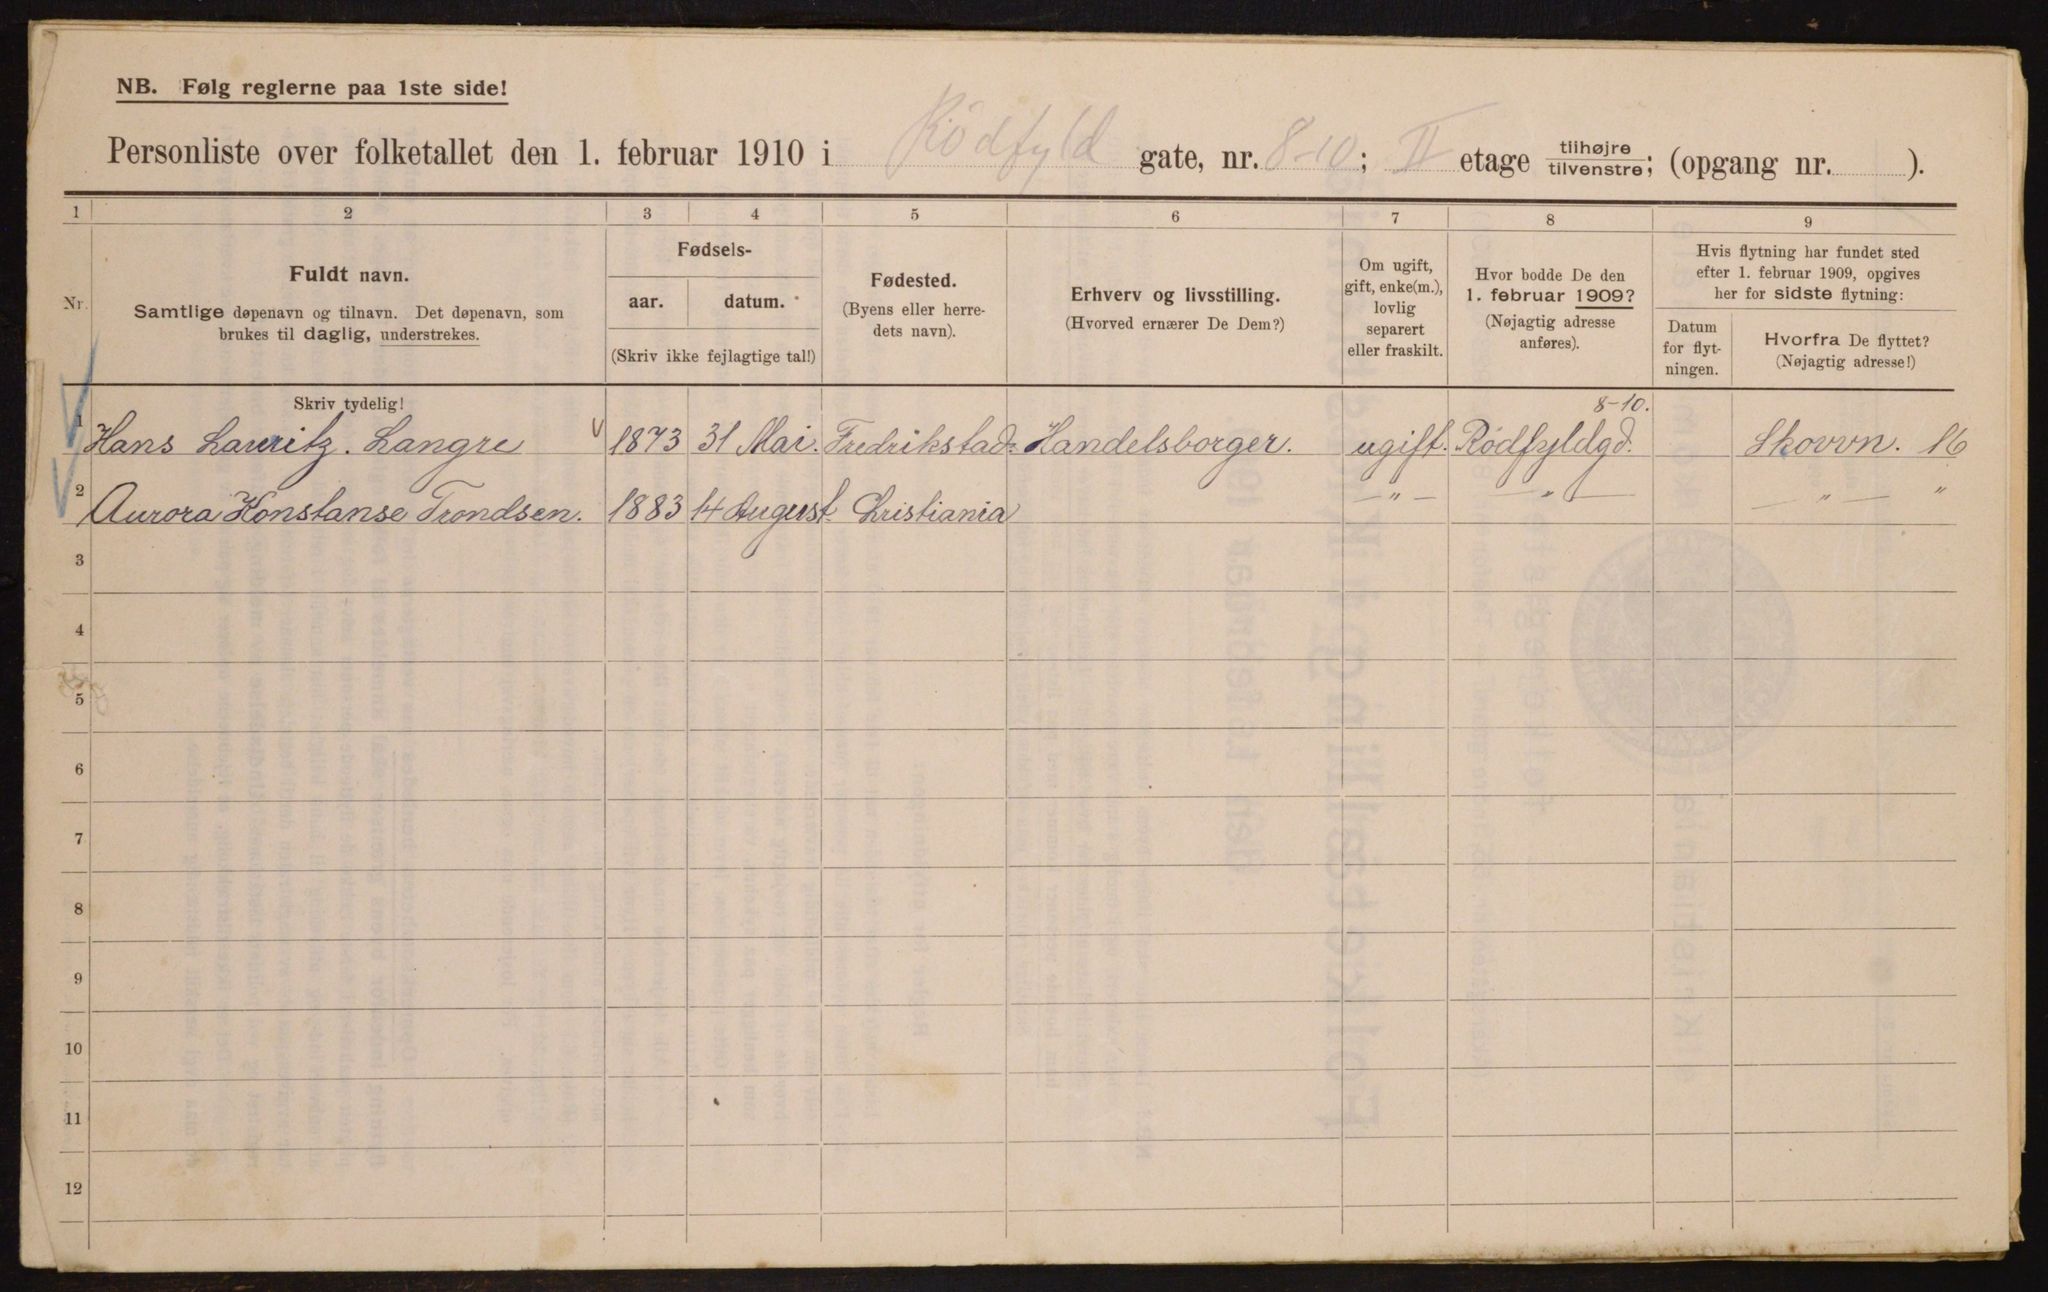 NB. Følg reglerne paa 1ste side!
Personliste over folketallet den 1. februar 1910 i Rödfyld gate, nr. 8-10; II etage tilhøjre/tilvenstre; (opgang nr. ).
1 2 3 4 5 6 7 8 9
Nr.
Fuldt navn.
Samtlige døpenavn og tilnavn. Det døpenavn, som
brukes til daglig, understrekes.
Fødsels-
aar. datum.
(Skriv ikke fejlagtige tal!)
Fødested.
(Byens eller herre-
dets navn).
Erhverv og livsstilling.
(Hvorved ernærer De Dem?)
Om ugift,
gift, enke(m.),
lovlig
separert
eller fraskilt.
Hvor bodde De den
1. februar 1909?
(Nøjagtig adresse
anføres).
Hvis flytning har fundet sted
efter 1. februar 1909, opgives
her for sidste flytning:
Datum
for flyt-
ningen.
Hvorfra De flyttet?
(Nøjagtig adresse!)
Skriv tydelig!
8-10.
1 Hans Lauritz. Langre 1873 31 Mai. Fredrikstad Handelsborger. ugift. Rödfyldgd. Skovvn. 16
2 Aurora Konstanse Trondsen. 1883 14 August Christiania — " — — " — — " — "
3
4
5
6
7
8
9
10
11
12